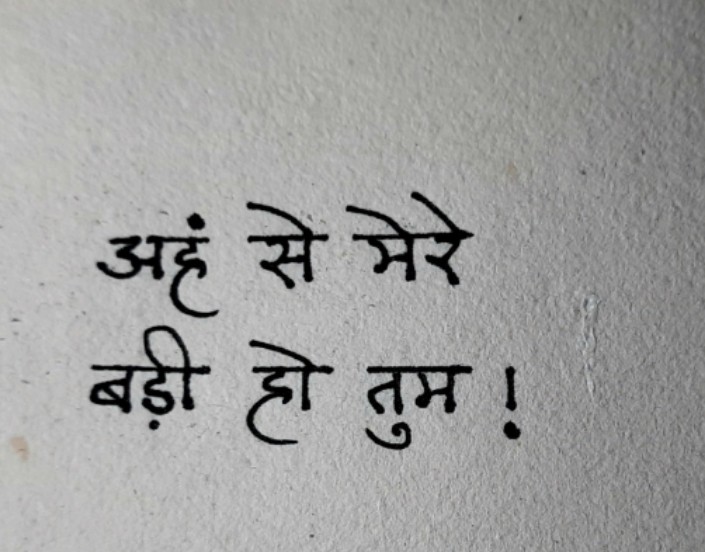 अहं से मेरे
बड़ी हो तुम !